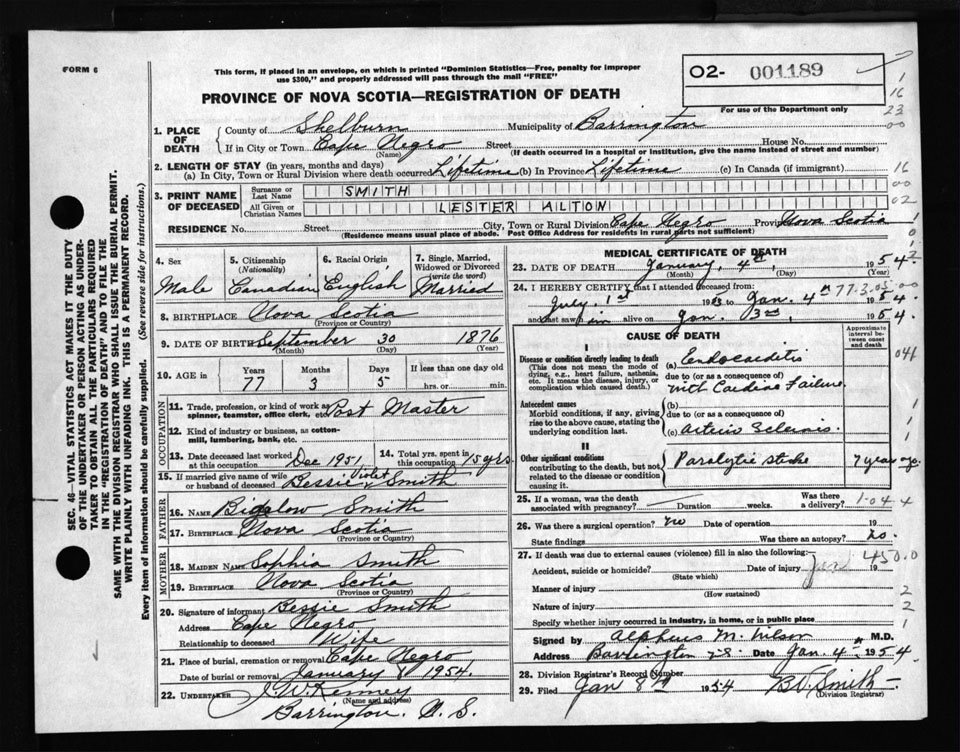 FORM 6
This form, if placed in an envelope, on which is printed "Dominion Statistics—Free, penalty for improper
use $300," and properly addressed will pass through the mail "FREE"
O2- 001189
PROVINCE OF NOVA SCOTIA—REGISTRATION OF DEATH
For use of the Department only
1. PLACE OF DEATH County of Shelburn Municipality of Barrington
If in City or Town Cape Negro Street House No.
(Name) (If death occurred in a hospital or institution, give the name instead of street and number)
2. LENGTH OF STAY (in years, months and days)
(a) In City, Town or Rural Division where death occurred Lifetime (b) In Province Lifetime (c) In Canada (if immigrant)
3. PRINT NAME OF DECEASED Surname or Last Name SMITH
All Given or Christian Names LESTER ALTON
RESIDENCE No. Street City, Town or Rural Division Cape Negro Province Nova Scotia
(Residence means usual place of abode. Post Office Address for residents in rural parts not sufficient)
4. Sex
Male
5. Citizenship
(Nationality)
Canadian
6. Racial Origin
English
7. Single, Married,
Widowed or Divorced
(write the word)
Married
8. BIRTHPLACE Nova Scotia
(Province or Country)
9. DATE OF BIRTH September 30 1876
(Month) (Day) (Year)
10. AGE Years Months Days If less than one day old
77 3 5 hrs. or min.
OCCUPATION
11. Trade, profession, or kind of work as
spinner, teamster, office clerk, etc. Post Master
12. Kind of industry or business, as cotton-
mill, lumbering, bank, etc.
13. Date deceased last worked
at this occupation Dec 1951
14. Total yrs. spent in
this occupation 15 yrs
15. If married give name of wife
or husband of deceased Bessie Violet Smith
FATHER
16. NAME Bigalow Smith
17. BIRTHPLACE Nova Scotia
(Province or Country)
MOTHER
18. MAIDEN NAME Sophia Smith
19. BIRTHPLACE Nova Scotia
(Province or Country)
20. Signature of informant Bessie Smith
Address Cape Negro
Relationship to deceased Wife
21. Place of burial, cremation or removal Cape Negro
Date of burial or removal January 8 1954.
22. UNDERTAKER J. W. Kenney
(Name and address)
Barrington. N. S.
MEDICAL CERTIFICATE OF DEATH
23. DATE OF DEATH January, 4th 1954
(Month) (Day) (Year)
24. I HEREBY CERTIFY that I attended deceased from:
July. 1st 19 to Jan. 4th 1954.
and last saw him alive on Jan. 3rd, 1954.
CAUSE OF DEATH
Approximate
interval be-
tween onset
and death
I
Disease or condition directly leading to death
(This does not mean the mode of
dying, e.g., heart failure, asthenia,
etc. It means the disease, injury, or
complication which caused death.)
(a) Endocarditis
due to (or as a consequence of)
with Cardiac Failure.
Antecedent causes
Morbid conditions, if any, giving
rise to the above cause, stating the
underlying condition last.
(b)
due to (or as a consequence of)
(c) Arterio Sclerosis.
II
Other significant conditions
contributing to the death, but not
related to the disease or condition
causing it.
Paralytic stroke 7 years ago.
25. If a woman, was the death
associated with pregnancy? Duration weeks. Was there a delivery?
26. Was there a surgical operation? no Date of operation 19
State findings Was there an autopsy? no.
27. If death was due to external causes (violence) fill in also the following:
Accident, suicide or homicide? Date of injury 19
(State which)
Manner of injury
(How sustained)
Nature of injury
Specify whether injury occurred in industry, in home, or in public place
Signed by Alpheus M. Wilson M.D.
Address Barrington N.S. Date Jan. 4th 1954.
28. Division Registrar's Record Number
29. Filed Jan 8th 1954 B.D. Smith
(Division Registrar)
SEC. 46—VITAL STATISTICS ACT MAKES IT THE DUTY
OF THE UNDERTAKER OR PERSON ACTING AS UNDER-
TAKER TO OBTAIN ALL THE PARTICULARS REQUIRED
IN THE "REGISTRATION OF DEATH" AND TO FILE THE
SAME WITH THE DIVISION REGISTRAR WHO SHALL ISSUE THE BURIAL PERMIT.
WRITE PLAINLY WITH UNFADING INK. THIS IS A PERMANENT RECORD.
Every item of information should be carefully supplied. (See reverse side for instructions.)
1
16
23
00
16
00
02
77.3.05.00
041
1
1
1
1-044
450.0
2
2
1